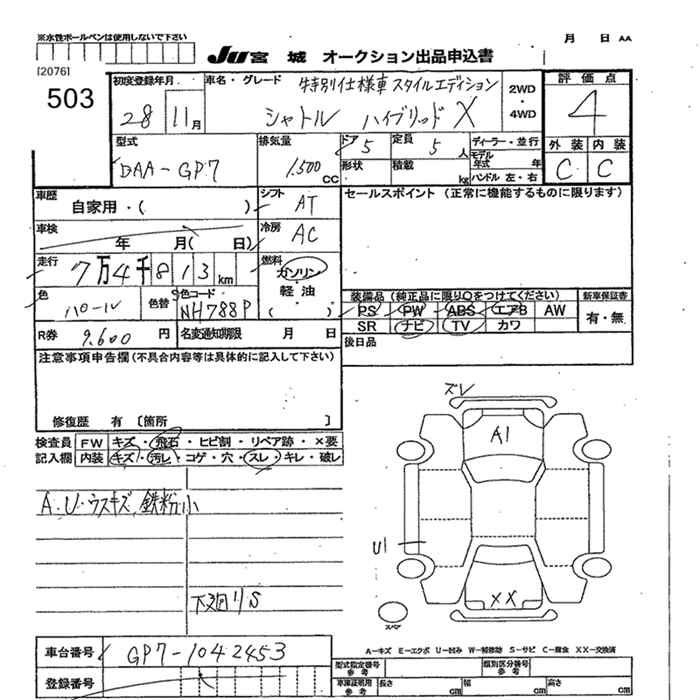 ※水性ボールペンは使用しないで下さい
月 日 AA
[2076]
JU宮城 オークション出品申込書
503
初度登録年月
28 11月
車名・グレード 特別仕様車 スタイルエディション
シャトル ハイブリッド X
2WD ・ 4WD
評価点
4
外装 内装
C C
型式
DAA-GP7
排気量
1.500 CC
ドア 5 定員 5 人
形状 積載 kg
ディーラー・並行
モデル年式 年
ハンドル 左・右
車歴 自家用・( )
シフト AT
セールスポイント (正常に機能するものに限ります)
車検 年 月( 日)
冷房 AC
走行 7万4千813km
燃料 ガソリン ・ 軽油 ( )
色 パール 色替 色コード NH788P
R券 9.600 円 名変通知期限 月 日
装備品 (純正品に限り○をつけてください) 新車保証書
PS PW ABS エアB AW 有・無
SR ナビ TV カワ
後日品
注意事項申告欄 (不具合内容等は具体的に記入して下さい)
修復歴 有 [箇所 ]
検査員 FW キズ・飛石・ヒビ割・リペア跡・×要
記入欄 内装 キズ・汚レ・コゲ・穴・スレ・キレ・破レ
A.U.ウスキズ、鉄粉小
下廻りS
ズレ
A1
U1
XX
スペア
A-キズ E-エクボ U-凹み W-補修跡 S-サビ C-腐食 XX-交換済
車台番号 GP7-1042453
登録番号
型式指定番号 参考 類別区分番号 参考
車庫証明用 参考 長さ cm 幅 cm 高さ cm